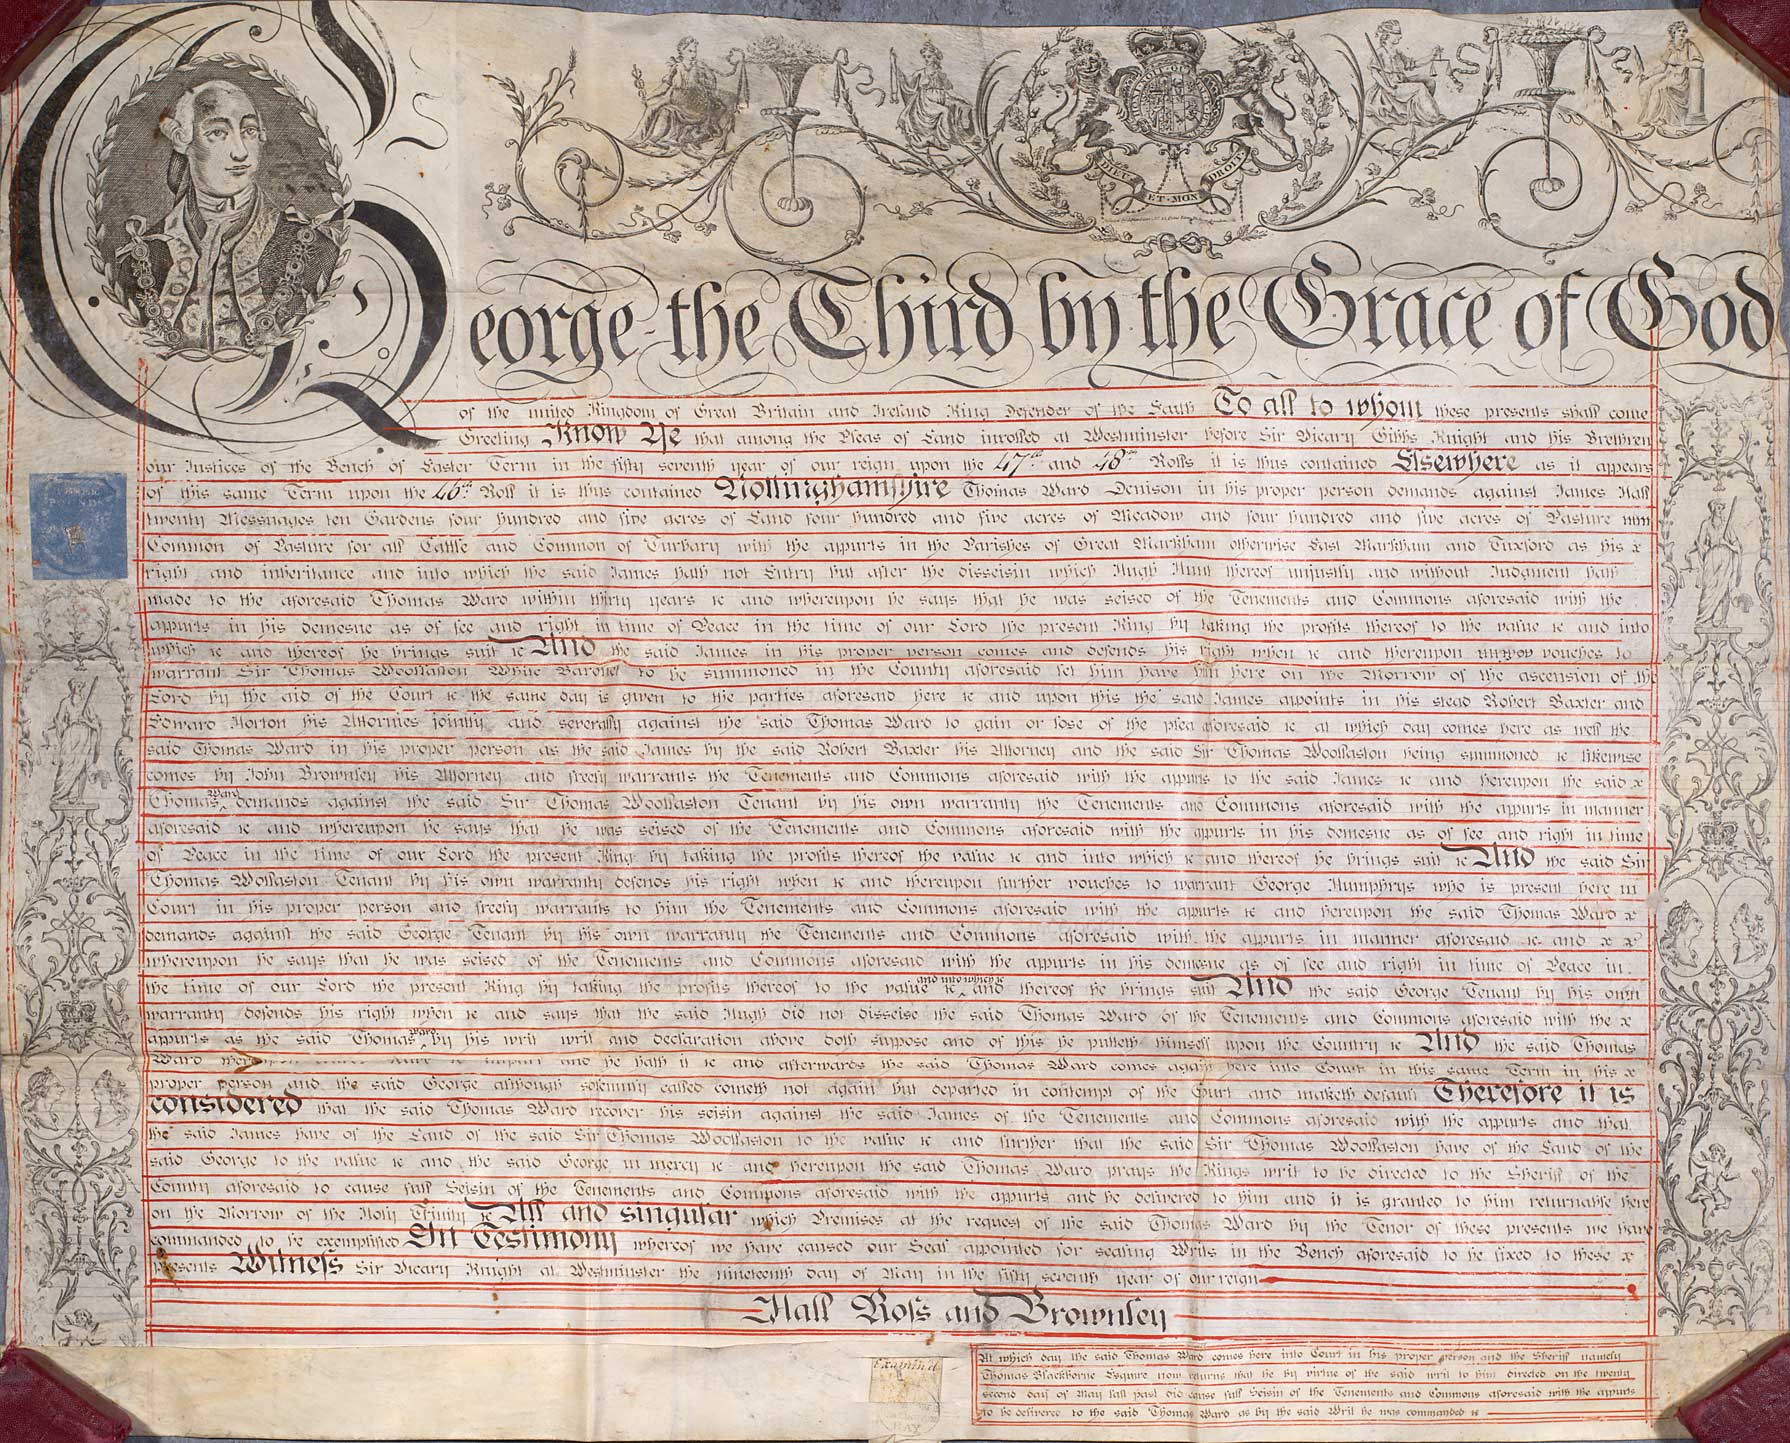 DIEU ET MON DROIT
George the Third by the Grace of God
of the united Kingdom of Great Britain and Ireland King Defender of the Faith To all to whom these presents shall come
Greeting Know Ye that among the Pleas of Land inrolled at Westminster before Sir Vicary Gibbs Knight and his Brethren
our Justices of the Bench of Easter Term in the fifty seventh year of our reign upon the 47th and 48th Rolls it is thus contained Elsewhere as it appears
of this same Term upon the 46th Roll it is thus contained Nottinghamshire Thomas Ward Denison in his proper person demands against James Hall
twenty Messuages ten Gardens four hundred and five acres of Land four hundred and five acres of Meadow and four hundred and five acres of Pasture
Common of Pasture for all Cattle and Common of Turbary with the appurts in the Parishes of Great Markham otherwise East Markham and Tuxford as his x
right and inheritance and into which the said James hath not Entry but after the disseisin which Hugh Hunt thereof unjustly and without Judgment hath
made to the aforesaid Thomas Ward within thirty years &c and whereupon he says that he was seised of the Tenements and Commons aforesaid with the
appurts in his demesne as of fee and right in time of Peace in the time of our Lord the present King by taking the profits thereof to the value &c and into
which &c and thereof he brings suit &c And the said James in his proper person comes and defends his right when &c and thereupon vouches to
warrant Sir Thomas Woollaston White Baronet to be summoned in the County aforesaid let him have him here on the Morrow of the ascension of the
Lord by the aid of the Court &c the same day is given to the parties aforesaid here &c and upon this the said James appoints in his stead Robert Baxter and
Edward Horton his Attornies jointly and severally against the said Thomas Ward to gain or lose of the plea aforesaid &c at which day comes here as well the
said Thomas Ward in his proper person as the said James by the said Robert Baxter his Attorney and the said Sir Thomas Woollaston being summoned &c likewise
comes by John Brownley his Attorney and freely warrants the Tenements and Commons aforesaid with the appurts to the said James &c and hereupon the said x
Thomas Ward demands against the said Sir Thomas Woollaston Tenant by his own warranty the Tenements and Commons aforesaid with the appurts in manner
aforesaid &c and whereupon he says that he was seised of the Tenements and Commons aforesaid with the appurts in his demesne as of fee and right in time
of Peace in the time of our Lord the present King by taking the profits thereof the value &c and into which &c and thereof he brings suit &c And the said Sir
Thomas Wollaston Tenant by his own warranty defends his right when &c and thereupon further vouches to warrant George Humphrys who is present here in
Court in his proper person and freely warrants to him the Tenements and Commons aforesaid with the appurts &c and hereupon the said Thomas Ward x
demands against the said George Tenant by his own warranty the Tenements and Commons aforesaid with the appurts in manner aforesaid &c and x x
whereupon he says that he was seised of the Tenements and Commons aforesaid with the appurts in his demesne as of fee and right in time of Peace in
the time of our Lord the present King by taking the profits thereof to the value &c and into which &c and thereof he brings suit And the said George Tenant by his own
warranty defends his right when &c and says that the said Hugh did not disseise the said Thomas Ward of the Tenements and Commons aforesaid with the x
appurts as the said Thomas Ward by his writ and declaration above doth suppose and of this he putteth himself upon the Country &c And the said Thomas
Ward &c to imparl and he hath it &c and afterwards the said Thomas Ward comes again here into Court in this same Term in his x
proper person and the said George although solemnly called cometh not again but departed in contempt of the Court and maketh default Therefore it is
considered that the said Thomas Ward recover his seisin against the said James of the Tenements and Commons aforesaid with the appurts and that
the said James have of the Land of the said Sir Thomas Woollaston to the value &c and further that the said Sir Thomas Woollaston have of the Land of the
said George to the value &c and the said George in mercy &c and hereupon the said Thomas Ward prays the Kings writ to be directed to the Sheriff of the
County aforesaid to cause full Seisin of the Tenements and Commons aforesaid with the appurts and be delivered to him and it is granted to him returnable here
on the Morrow of the Holy Trinity &c All and singular which Premises at the request of the said Thomas Ward by the Tenor of these presents we have
commanded to be exemplified In Testimony whereof we have caused our Seal appointed for sealing Writs in the Bench aforesaid to be fixed to these x
presents Witness Sir Vicary Knight at Westminster the nineteenth day of May in the fifty seventh year of our reign
Hall Ross and Brownley
Examind
At which day the said Thomas Ward comes here into Court in his proper person and the Sheriff namely
Thomas Blackborne Esquire now returns that he by virtue of the said writ to him directed on the twenty
second day of May last past did cause full Seisin of the Tenements and Commons aforesaid with the appurts
to be delivered to the said Thomas Ward as by the said Writ he was commanded &c